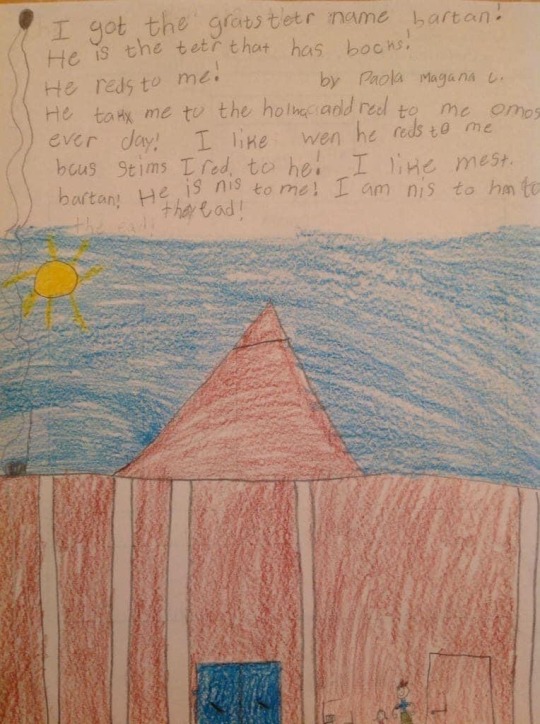 I got the gratstetr name bartan!
He is the tetr that has bocks!
He reds to me!
by Paola Magana L.
He takx me to the and red to me omos
ever day! I like wen he reds to me
bcus stims I red to he! I like mest.
bartan! He is nis to me! I am nis to hm to
the ead!
the ead!